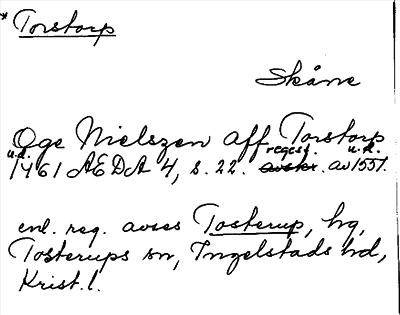 * Torstorp
Skåne
Oge Nielszen aff Torstorp
u.d. regest. u.d.
1461 AEDA 4, s. 22. avskr. av 1551.
enl. reg. avses Tosterup, hg,
Tosterups sn, Ingelstads hd,
Krist.l.